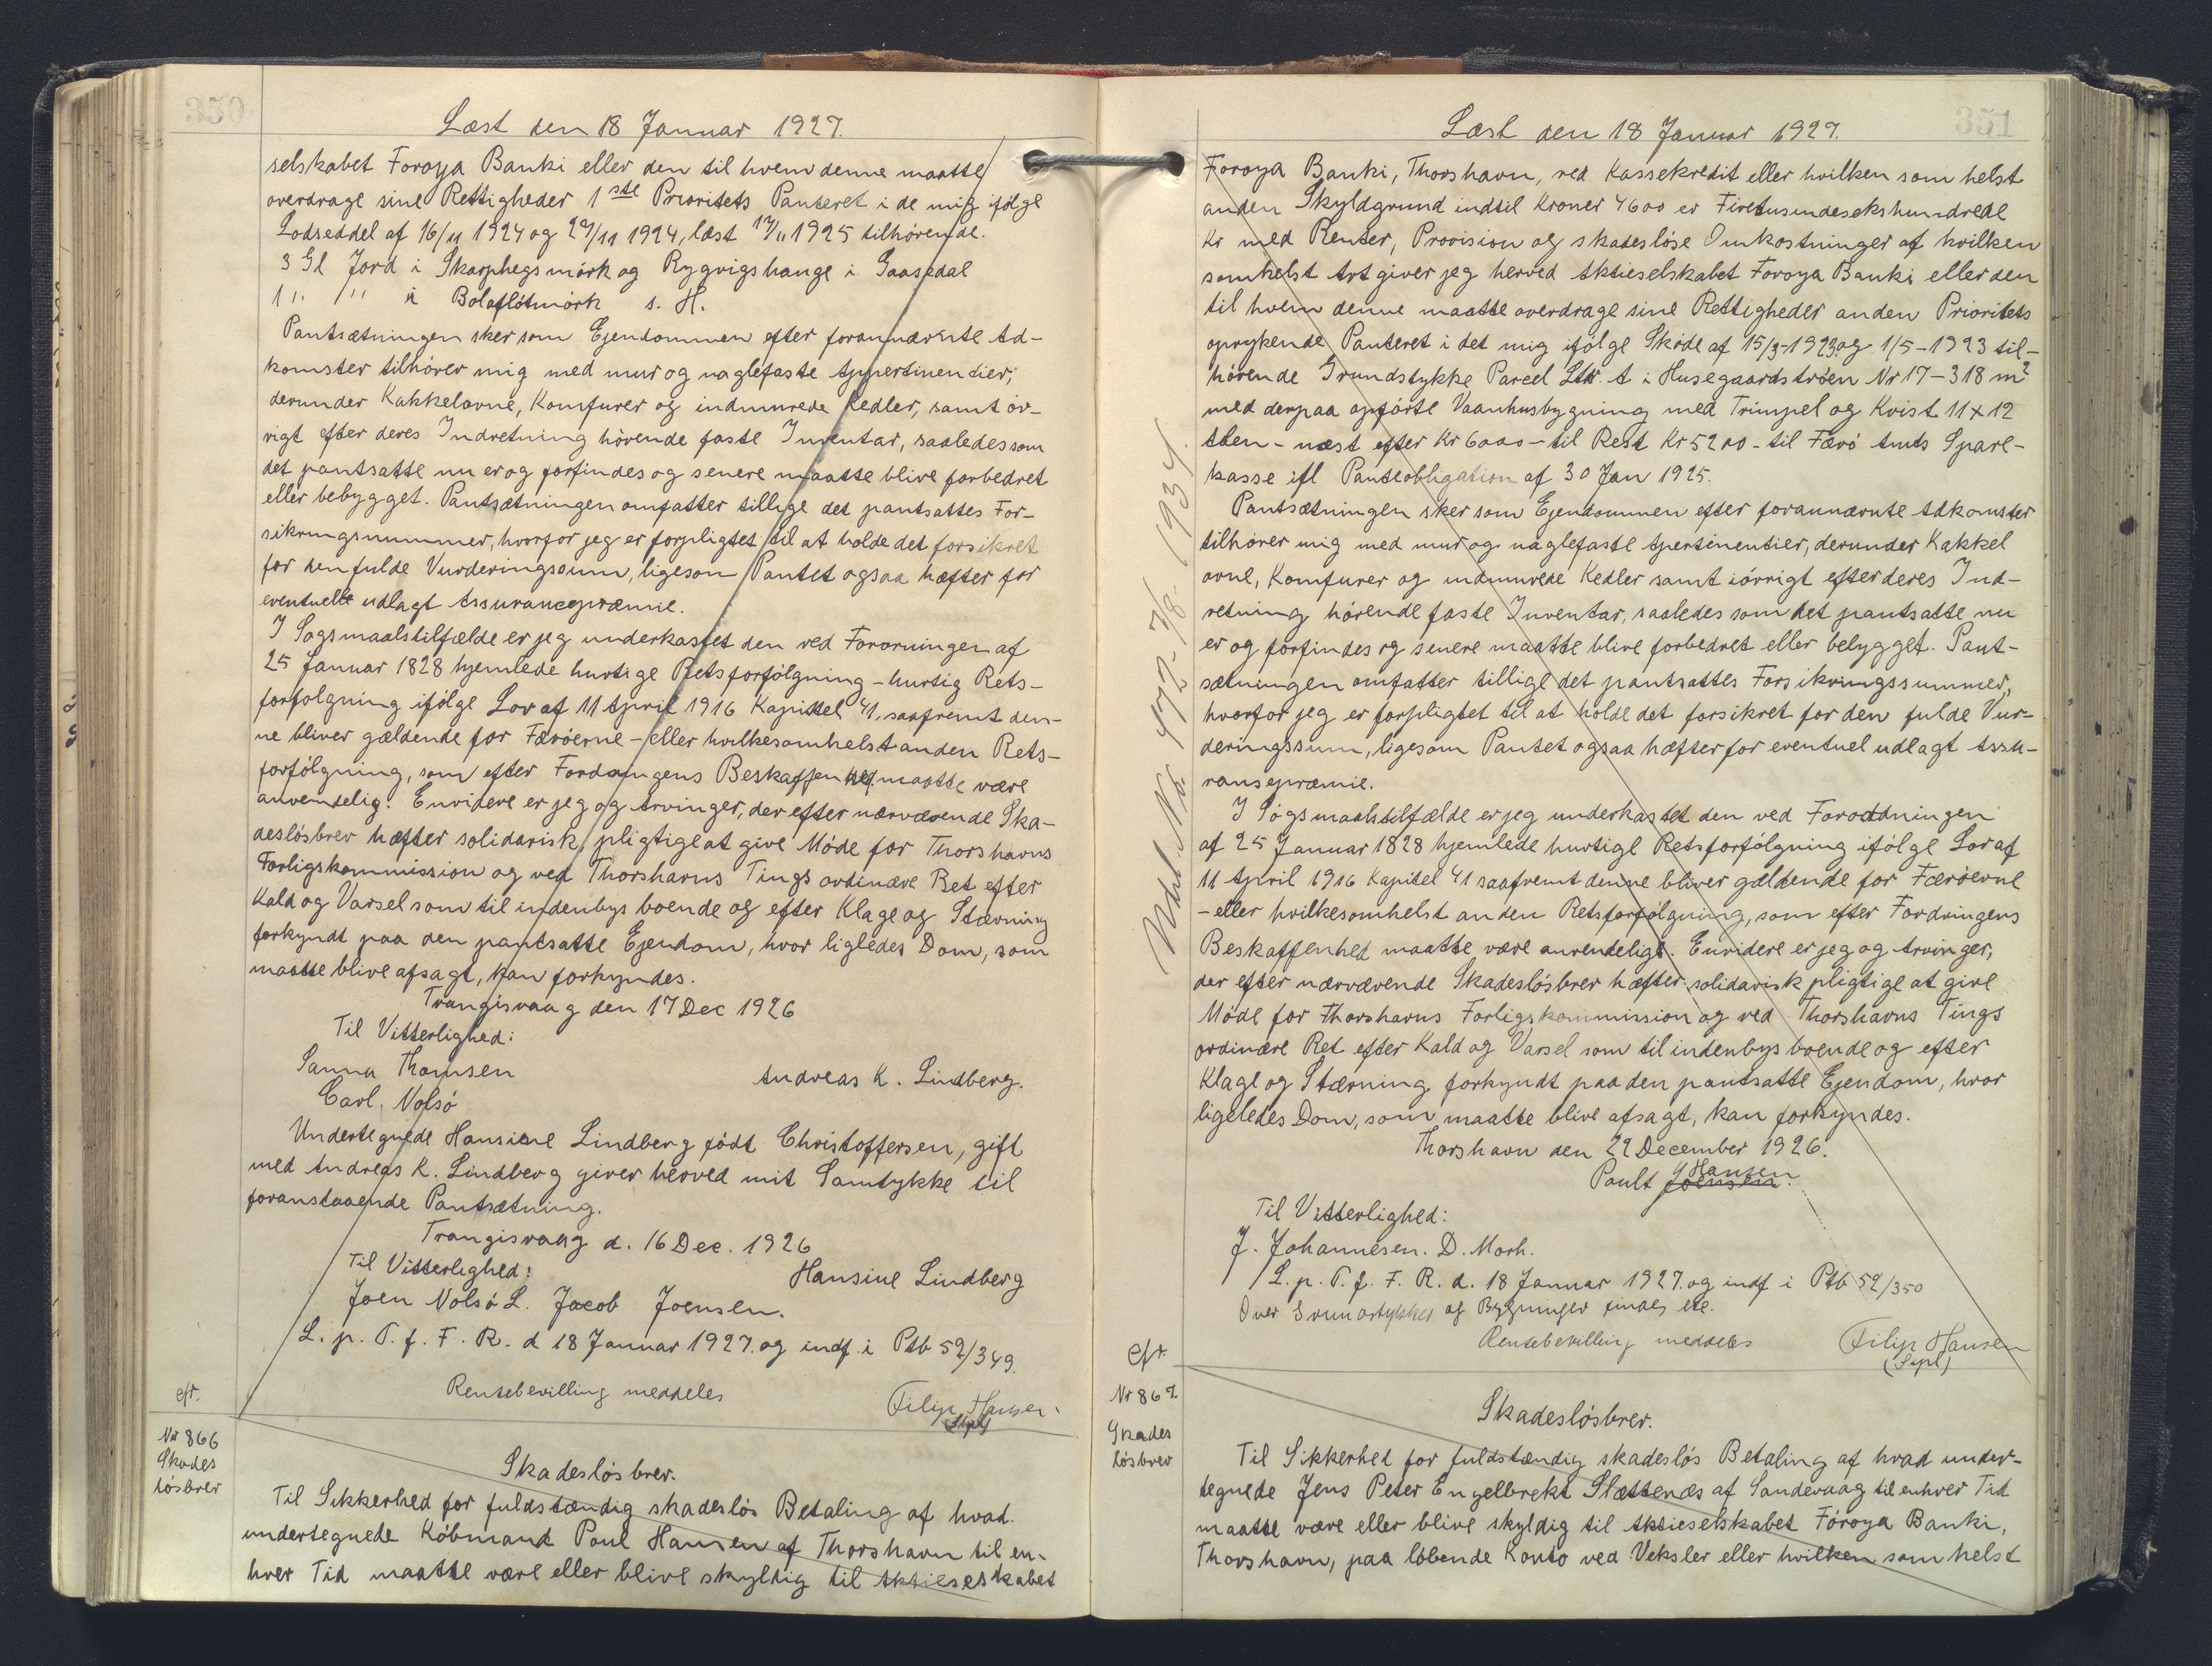 350
Læst den 18 Januar 1927.
selskabet Foroya Banki eller den til hvem denne maatte
overdrage sine Rettigheder 1ste Prioritets Panteret i de mig ifølge
Lodseddel af 16/11 1924 og 29/11 1924, læst 17/11 1925 tilhørende.
3 Gl Jord i Skarphegsmørk og Rygvigshange i Gaasedal
1 " " i Bølafløtmørk s. H.
Pantsætningen sker som Ejendommen efter forannævnte Ad-
komster tilhører mig med mur og naglefaste Appertinentier,
derunder Kakkelovne, Komfurer og indmurede Kedler, samt øv-
rigt efter deres Indretning hørende faste Inventar, saaledes som
det pantsatte nu er og forfindes og senere maatte blive forbedret
eller bebygget. Pantsætningen omfatter tillige det pantsattes For-
sikringsummer, hvorfor jeg er forpligtet til at holde det forsikret
for den fulde Vurderingssum, ligesom Pantet ogsaa hæfter for
eventuelt udlagt Assurancepræmie.
I Søgsmaalstilfælde er jeg underkastet den ved Forordninger af
25 Januar 1828 hjemlede hurtige Retsforfølgning - hurtig Rets-
forfølgning ifølge Lov af 11 April 1916 Kapittel 41, saafremt den-
ne bliver gældende for Færøerne - eller hvilkesomhelst anden Rets-
forfølgning, som efter Fordringens Beskaffenhed maatte være
anvendelig. Envidere er jeg og Arvinger, der efter nærværende Ska-
desløsbrev hæfter solidarisk, pligtige at give Møde for Thorshavns
Forligskommission og ved Thorshavns Tings ordinære Ret efter
Kald og Varsel som til indenbys boende og efter Klage og Stævning
forkyndt paa den pantsatte Ejendom, hvor ligledes Dom, som
maatte blive afsagt, kan forkyndes.
Trangisvaag den 17 Dec 1926
Til Vitterlighed:
Sanna Thomsen
Andreas K. Lindberg.
Carl. Nolsø
Undertegnede Hansine Lindberg født Christoffersen, gift
med Andreas K. Lindberg giver herved mit Samtykke til
foranstaaende Pantsætning.
Trangisvaag d. 16 Dec. 1926
Til Vitterlighed:
Hansine Lindberg
Joen Nolsø L. Jacob Joensen.
L. p. T. f. F. R. d 18 Januar 1927. og indf. i Ptb 52/349.
Rentebevilling meddeles
Filip Hansen
(Sepl)
eft.
Nr 866
Skades
løsbrev
Skadesløsbrev.
Til Sikkerhed for fuldstændig skadesløs Betaling af hvad
undertegnede Købmand Poul Hansen af Thorshavn til en-
hver Tid maatte være eller blive skyldig til Aktieselskabet
351
Læst den 18 Januar 1927.
Foroya Banki, Thorshavn, ved Kassekredit eller hvilken som helst
anden Skyldgrund indtil Kroner 4600 er Firetusindesekshundrede
Kr med Renter, Provision og skadesløse Omkostninger af hvilken
somhelst Art giver jeg herved Aktieselskabet Foroya Banki eller den
til hvem denne maatte overdrage sine Rettigheder anden Prioritets
oprykende Panteret i det mig ifølge Skøde af 15/3-1923 og 1/5-1923 til-
hørende Grundstykke Parcel Litr. A i Husegaardstrøen Nr 17 - 318 m2
med derpaa opførte Vaanhusbygning med Trimpel og Kvist 11 x 12
Alen - næst efter Kr 6000 - til Rest Kr 5200 - til Færø Amts Spare-
kasse ifl Panteobligation af 30 Jan 1925.
Pantsætningen sker som Ejendommen efter forannævnte Adkomster
tilhører mig med mur og naglefaste Apertinentier, derunder Kakkel
ovne, Komfurer og indmurede Kedler samt iøvrigt efter deres Ind-
retning hørende faste Inventar, saaledes som det pantsatte nu
er og forfindes og senere maatte blive forbedret eller bebygget. Pant-
sætningen omfatter tillige det pantsattes Forsikringssummer,
hvorfor jeg er forpligtet til at holde det forsikret for den fulde Vur-
deringssum, ligesom Pantet ogsaa hæfter for eventuel udlagt Assu-
ransepræmie.
I Søgsmaalstilfælde er jeg underkastet den ved Forordningen
af 25 Januar 1828 hjemlede hurtige Retsforfølgning ifølge Lov af
11 April 1916 Kapitel 41 saafremt denne bliver gældende for Færøerne
- eller hvilkesomhelst anden Retsforfølgning, som efter Fordringens
Beskaffenhed maatte være anvendelige. Envidere er jeg og Arvinger,
der efter nærværende Skadesløsbrev hæfter solidarisk pligtige at give
Møde for Thorshavns Forligskommission og ved Thorshavns Tings
ordinære Ret efter Kald og Varsel som til indenbys boende og efter
Klage og Stævning forkyndt paa den pantsatte Ejendom, hvor
ligeledes Dom, som maatte blive afsagt, kan forkyndes.
Thorshavn den 22 December 1926.
Hansen
Poult Joensen.
Til Vitterlighed:
J. Johannesen. D. Morh.
L. p. T. f. F. R. d. 18 Januar 1927. og indf i Ptb 52/350
Over Grunnstykker og Bygninger findes ete.
Rentebevilling meddeles
Filip Hansen
(Sepl)
eft.
Nr 867
Skades
løsbrev
Skadesløsbrev.
Til Sikkerhed for fuldstændig skadesløs Betaling af hvad under-
tegnede Jens Peter Engelbrekt Slættenæs af Sandevaag til enhver Tid
maatte være eller blive skyldig til Aktieselskabet Føroya Banki,
Thorshavn, paa løbende Konto ved Veksler eller hvilken som helst